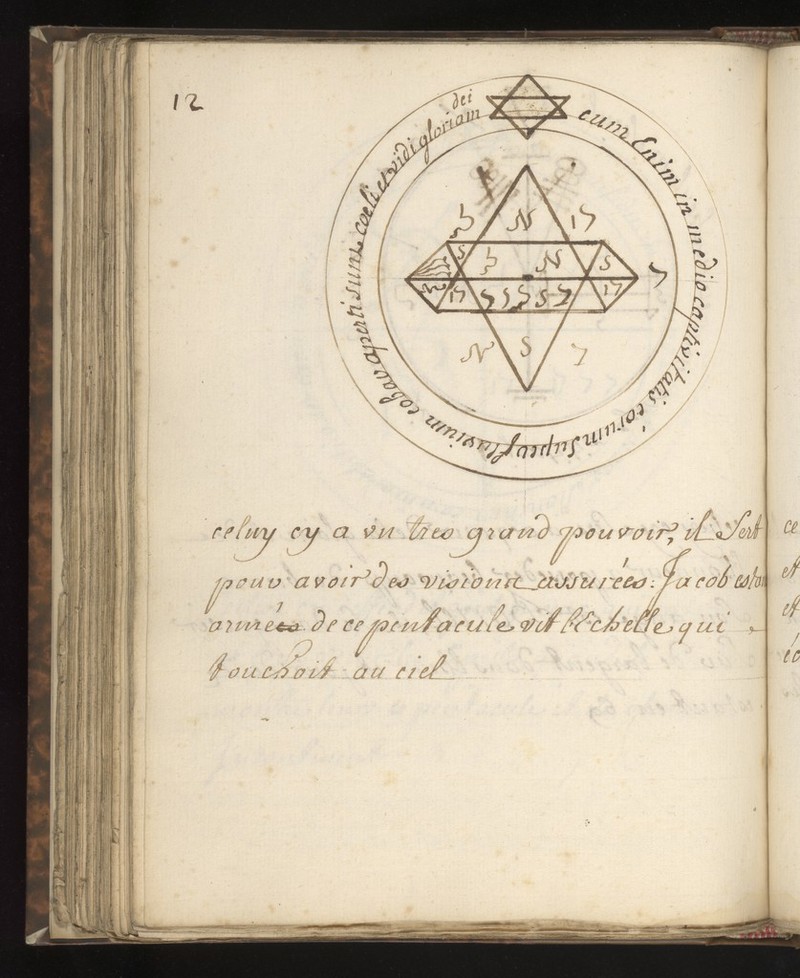 12
cum Enim in medio captivitatis eorum supra fluvium cobar aperti sunt coeli et vidi gloriam
dei
celuy cy a vn tres grand pouvoir, il Sert
pour avoir des visions assurées. Jacob estan
armée de ce pentacule vit l'Echelle qui
touchoit au ciel